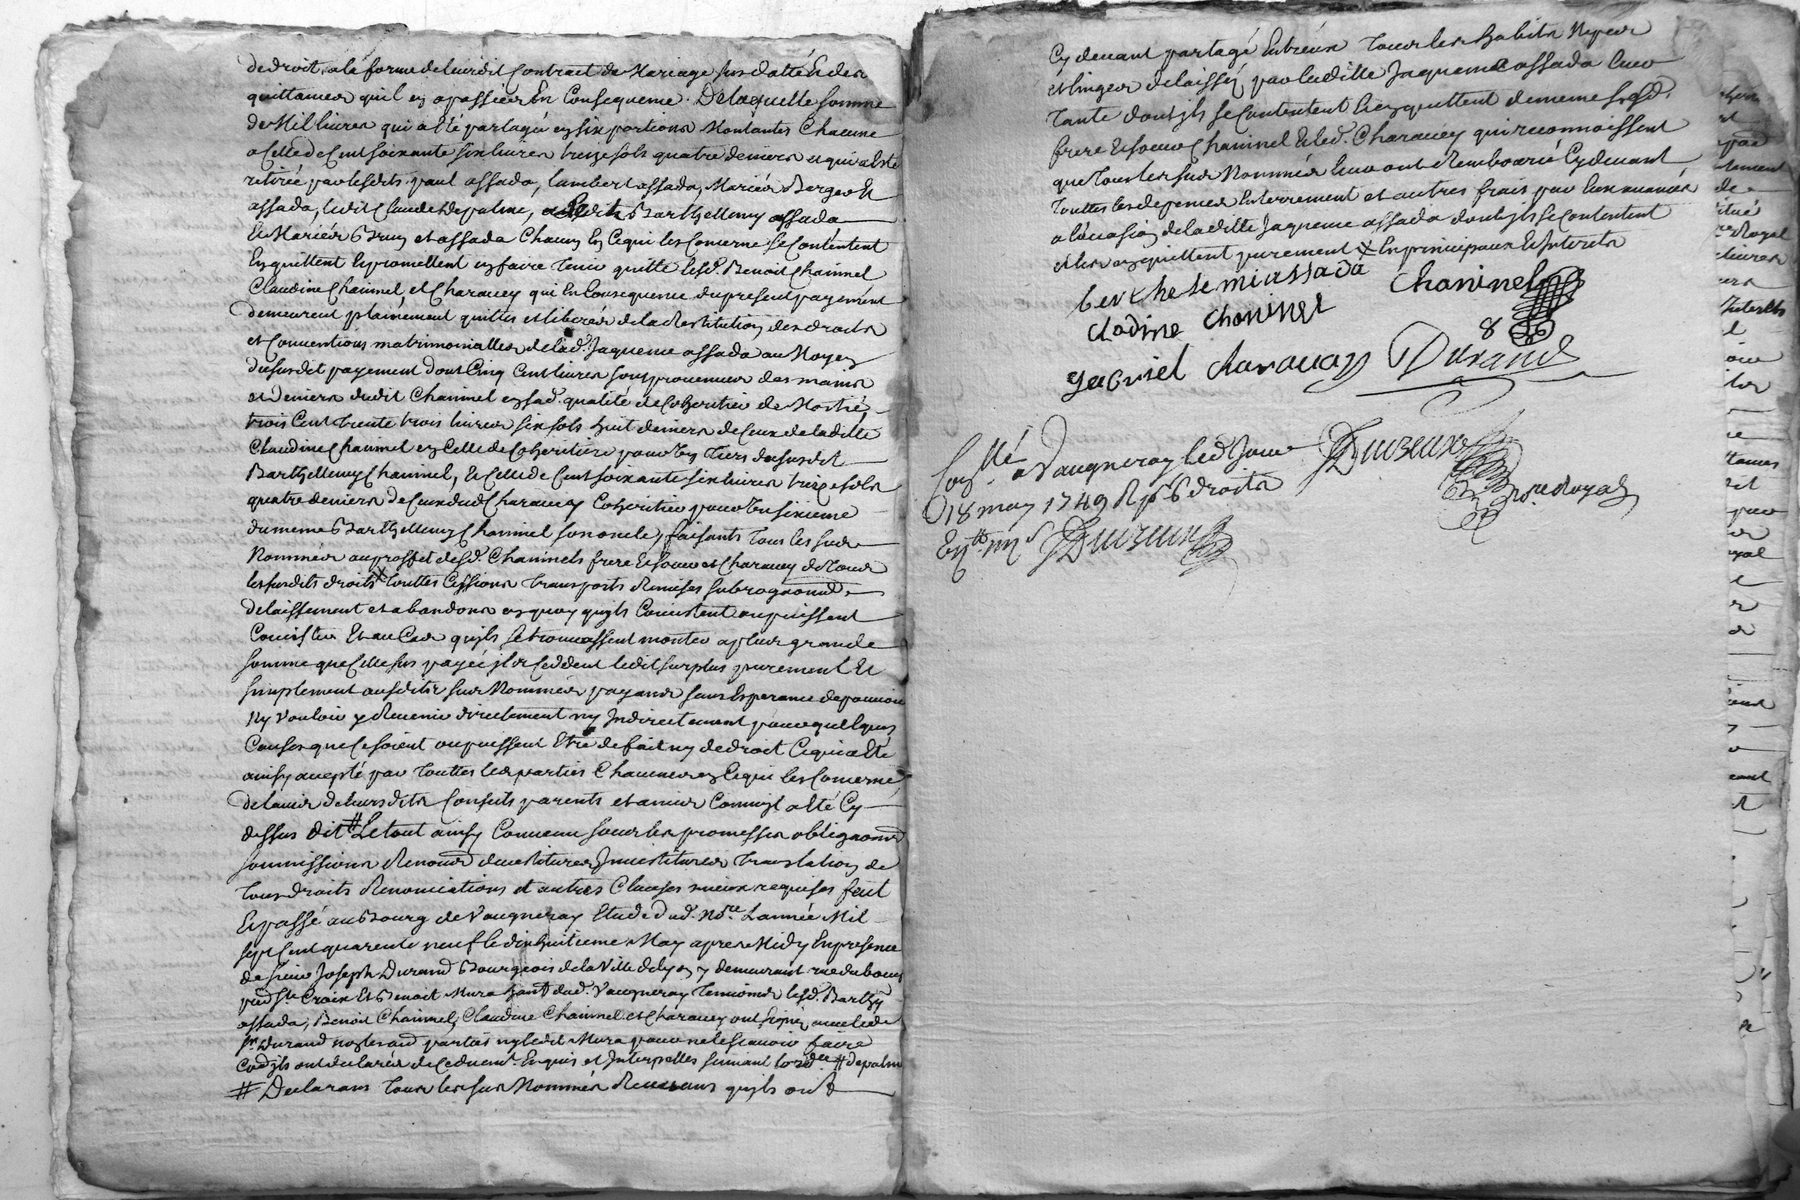 de droit a la forme de leurdit Contract de Mariage sus datté et des
quittances qu'il en a passées En Consequence. De laquelle somme
de Mil livres qui a été partagée en six portions Montantes Chacune
a Celle de Cent soixante six livres treize sols quatre deniers et qui a esté
retirée par lesdits paul assada, lambert assada, Mariés Berger Et
assada, ledit Claude depalme, Barthellemy assada
Et Mariés Brun et assada Chacun En Cequi les Concerne se Contentent
En quittent Et promettent en faire tenir quitte lesd. Benoit Chaninel
Claudine Chaninel, et Charavey qui En Consequence du present payement
demeurent plainement quittes et liberés de la Restitution des droits
et Conventions matrimonialles de lad. Jaqueme assada au Moyen
du susdit payement dont Cinq Cent livres sont provenues des mains
et deniers dudit Chaninel en sad. qualité de Coheritier de Moitié,
trois Cent trente trois livres six sols huit deniers de Ceux de laditte
Claudine Chaninel en Celle de Coheritiere pour un tiers du susdit
Barthellemy Chaninel, Et Celle de Cent soixante six livres treize sols
quatre deniers de Ceux dud. Charavey Coheritier pour un sixieme
du meme Barthellemy Chaninel son oncle, faisants tous les sus
Nommés au proffit desd. Chaninels frere Et soeur et Charavey de tous
les susdits droits x touttes Cessions transports Remises subrogations
delaissement et abandons en quoy qu'ils Consistent ou puissent
Consister Et au Cas qu'ils se trouvassent monter a plus grande
somme que Celle sus payée ils Ceddent ledit surplus purement Et
simplement ausdits sus Nommés payans sans Esperance de pouvoir
Ny Vouloir y Revenir directement ny Indirectement pour quelques
Causes que Ce soient ou puissent Etre de fait ny de droit Ce qui a Eté
ainsy accepté par touttes les parties Chacunes en Cequi les Concerne
de l'avis de leursdits Conseils parents et amies Comm'il a été Cy
dessus dit # Le tout ainsy Convenu sous les promesses obligaons
soumissions Renonons devestitures Investitures translation de
tous droits Renonciations et autres Clauses mieux requises fait
Et passé au Bourg de Vaugneray Etude dud. No.re L'année Mil
sept Cent quarente neuf le dix huitieme May apres Midy En presence
de sieur Joseph Durand Bourgeois de la Ville de Lyon y demeurant rue du boeuf
parsse Ste Croix Et Benoit Mura hant dud. Vaugneray temoins lesd. Barthy
assada, Benoit Chaninel, Claudine Chaninel et Charavey ont signés avec ledt
sr. Durand non les aud. parties ny ledit Mura pour ne le scavoir faire
Ce qu'ils ont declarés de Ce duemt. Enquis et Interpellés suivant l'ord.ce # depalme
# Declarans tous les sus Nommés Recevans qu'ils ont
Cy devant partagé Entreux tous les habits Nipes
et linges delaissés par laditte Jaqueme assada leur
tante dont ils se Contentent Et en quittent de meme lesd.
frere Et soeur Chaninel Et led. Charavey qui reconnoissent
que tous les sus Nommés leur ont Remboursé Cy devant
touttes les depences Enterrement et autres frais par Eux avancés
a l'occasion de laditte Jaqueme assada dont ils se Contentent
et les en quittent purement x En principaux Et Interets
berthelemi assada Chaninel
cladine chaninel
gabriel charavay Durand
Collé. a Vaugneray led. Jour
18 may 1749 R 6 droits
Royal